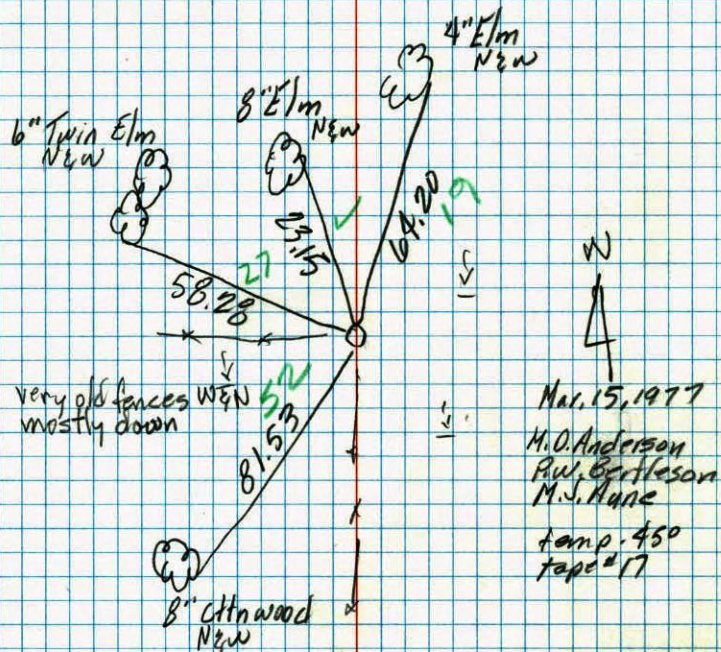 4" Elm
N&W
8" Elm
N&W
6" Twin Elm
N&W
64.20
19
23.15
✓
58.28
27
N
very old fences W&N
mostly down
52
81.53
8" cttnwood
N&W
Mar. 15, 1977
M.O. Anderson
R.W. Bertleson
M.J. Aune
temp. 45°
tape # 17